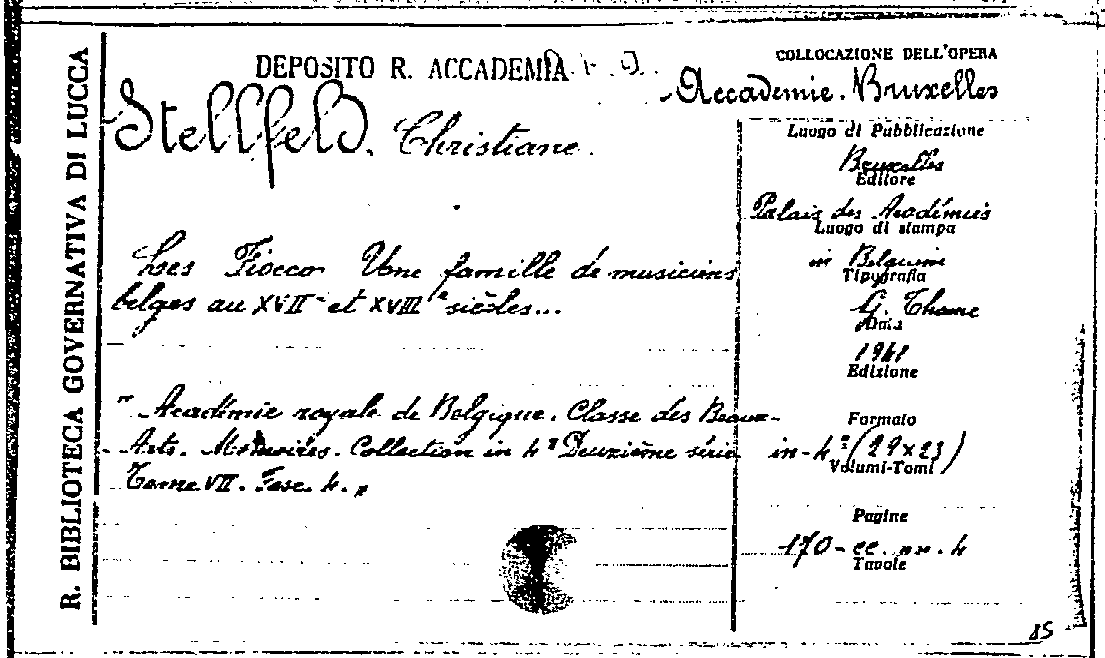 R. BIBLIOTECA GOVERNATIVA DI LUCCA
DEPOSITO R. ACCADEMIA
Stellfeld. Christiane.
Les Fiocco Une famille de musiciens
belges au XVII e et XVIII e siècles...
" Académie royale de Belgique. Classe des Beaux-
Arts. Memoires. Collection in 4º Deuxième série
Tome VII. Fasc. 4. "
COLLOCAZIONE DELL'OPERA
Accademie. Bruxelles
Luogo di Pubblicazione
Bruxelles
Editore
Palais des Académies
Luogo di stampa
in Belgium
Tipografia
G. Thone
Data
1941
Edizione
Formato
in-4º (29x23)
Volumi-Tomi
Pagine
170-cc. nn. 4
Tavole
85